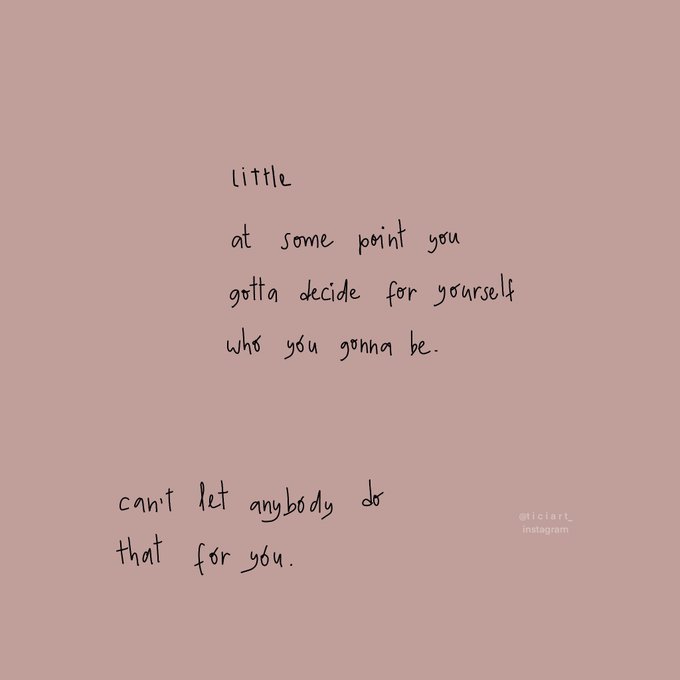 little
at some point you
gotta decide for yourself
who you gonna be.
can't let anybody do
that for you.
@ticiart_
instagram